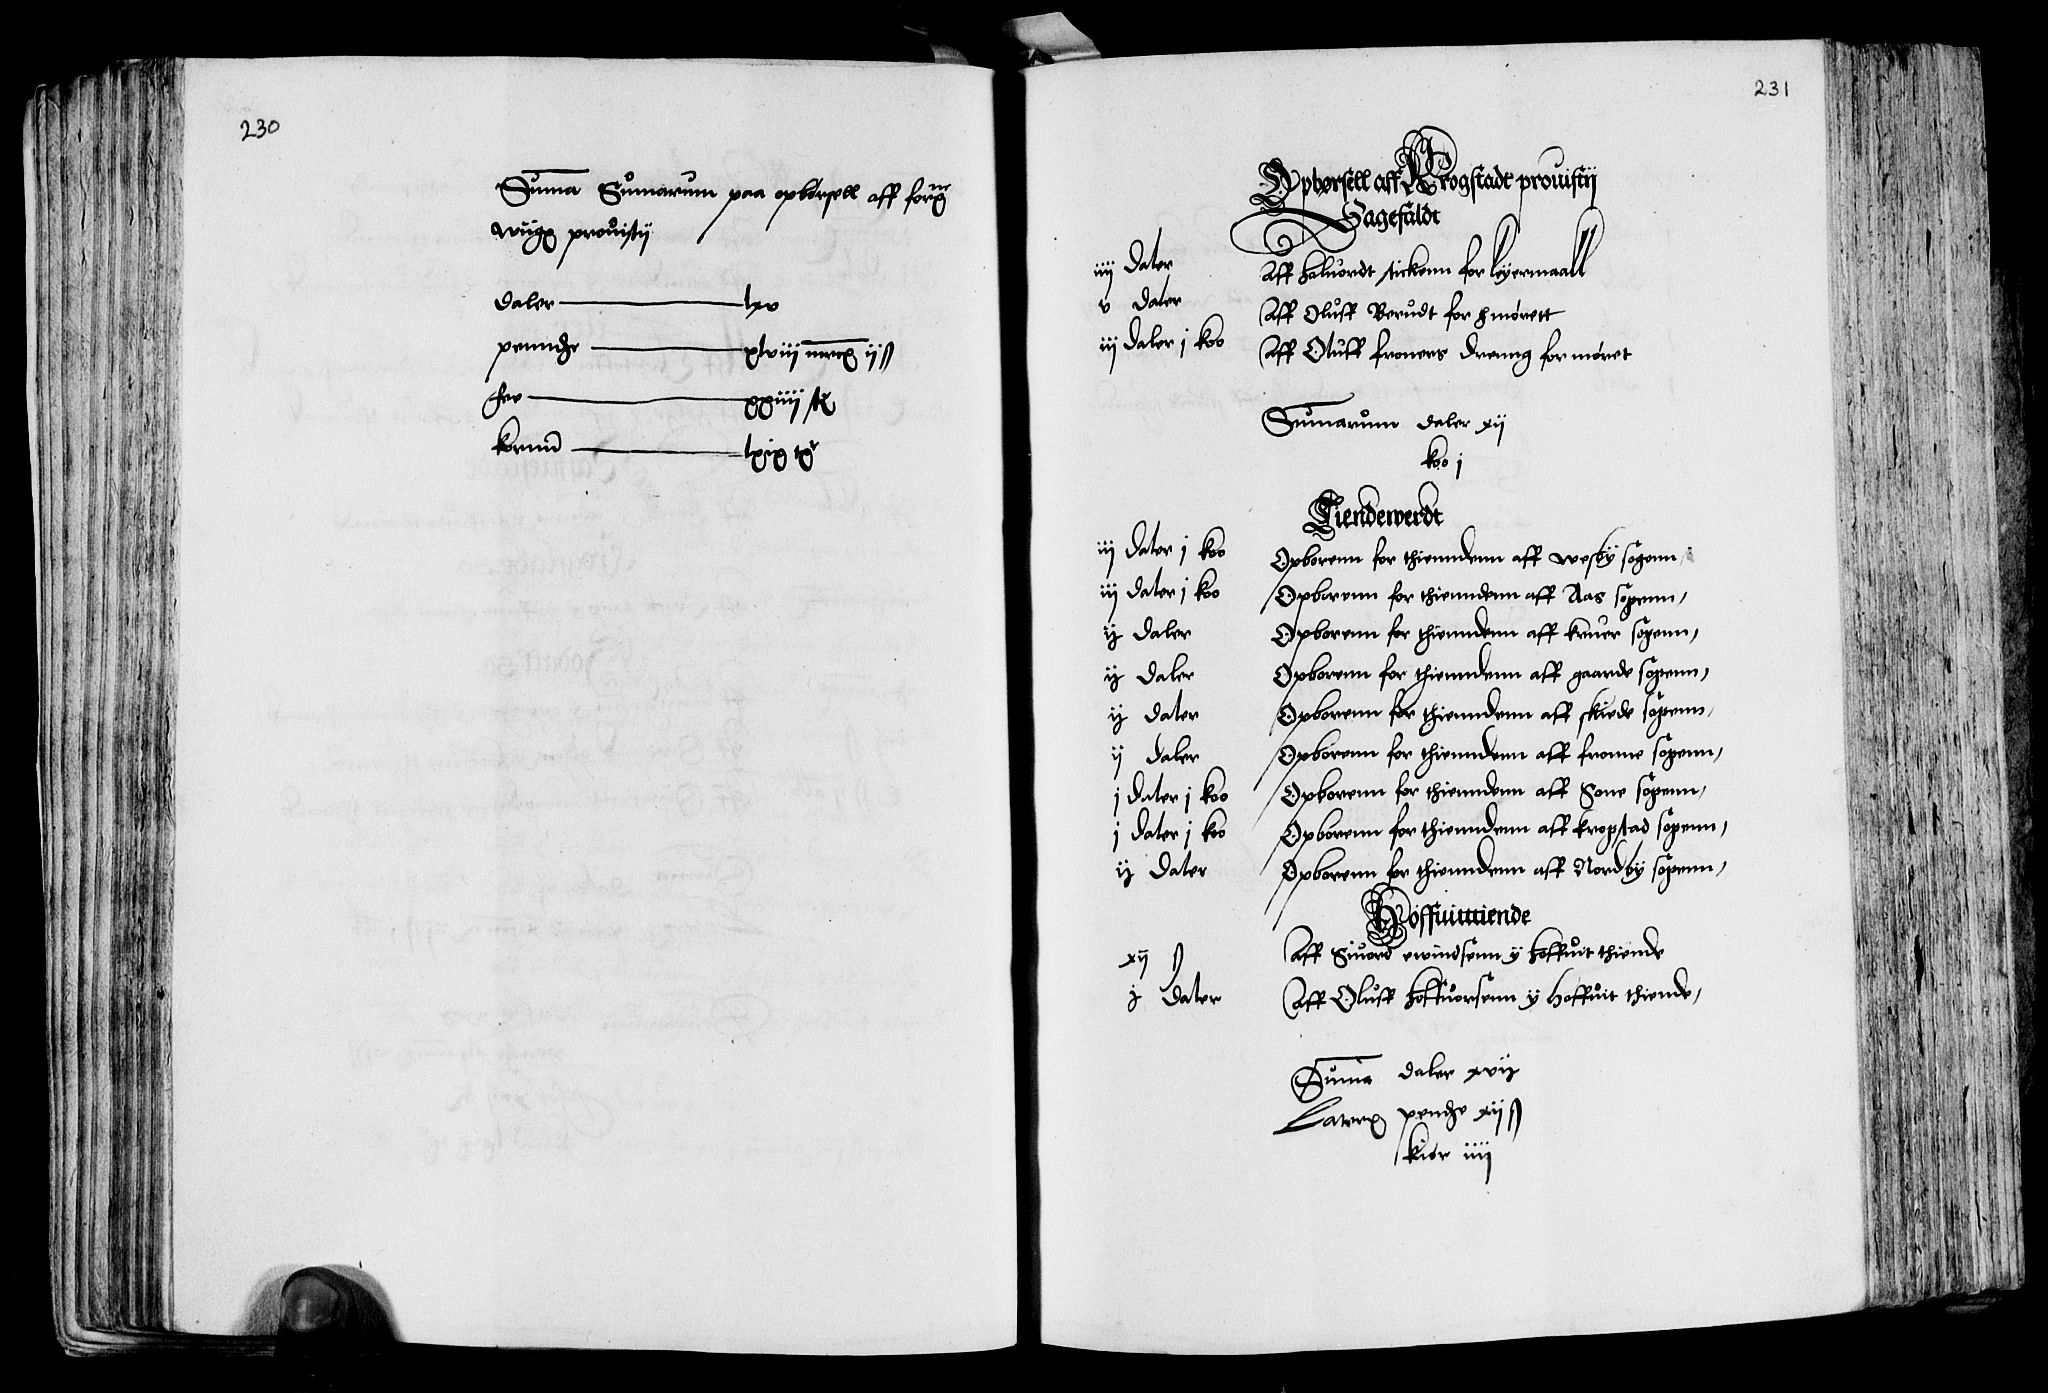 230
Summa Sumarum paa opbørsell aff forne
wiigz prouistij
daler lxv
penndge xlviij marcz ij ß
sex xxiiij stk
kornn lxix tr
231
Opbørsell aff Krogstadt prouistij
Sagefaldt
iiij daler Aff haluordt stickenn for leyermaall
v daler Aff Oluff Berudt for hmørett
iij daler j koo Aff Oluff froners dreng for møret
Sumarum daler xij
koo j
Tiendewerdt
iij daler j koo Opborenn for thienndenn aff wesby sogenn
iij daler j koo Opborenn for thienndenn aff Aas sogenn
ij daler Opborenn for thienndenn aff kruer sogenn
ij daler Opborenn for thienndenn aff gaarde sogenn
ij daler Opborenn for thienndenn aff skiede sogenn
ij daler Opborenn for thienndenn aff fronne sogenn
j daler j koo Opborenn for thienndenn aff Sone sogenn
j daler j koo Opborenn for thienndenn aff kropstad sogenn
ij daler Opborenn for thienndenn aff Nordby sogenn
Hoffuittiende
xij ß Aff Siuord ewindsenn y hoffuit thiende
j daler Aff Oluff hoffuorsenn y hoffuit thiende
Summa daler xvij
Laterz pendge xij ß
kiør iiij